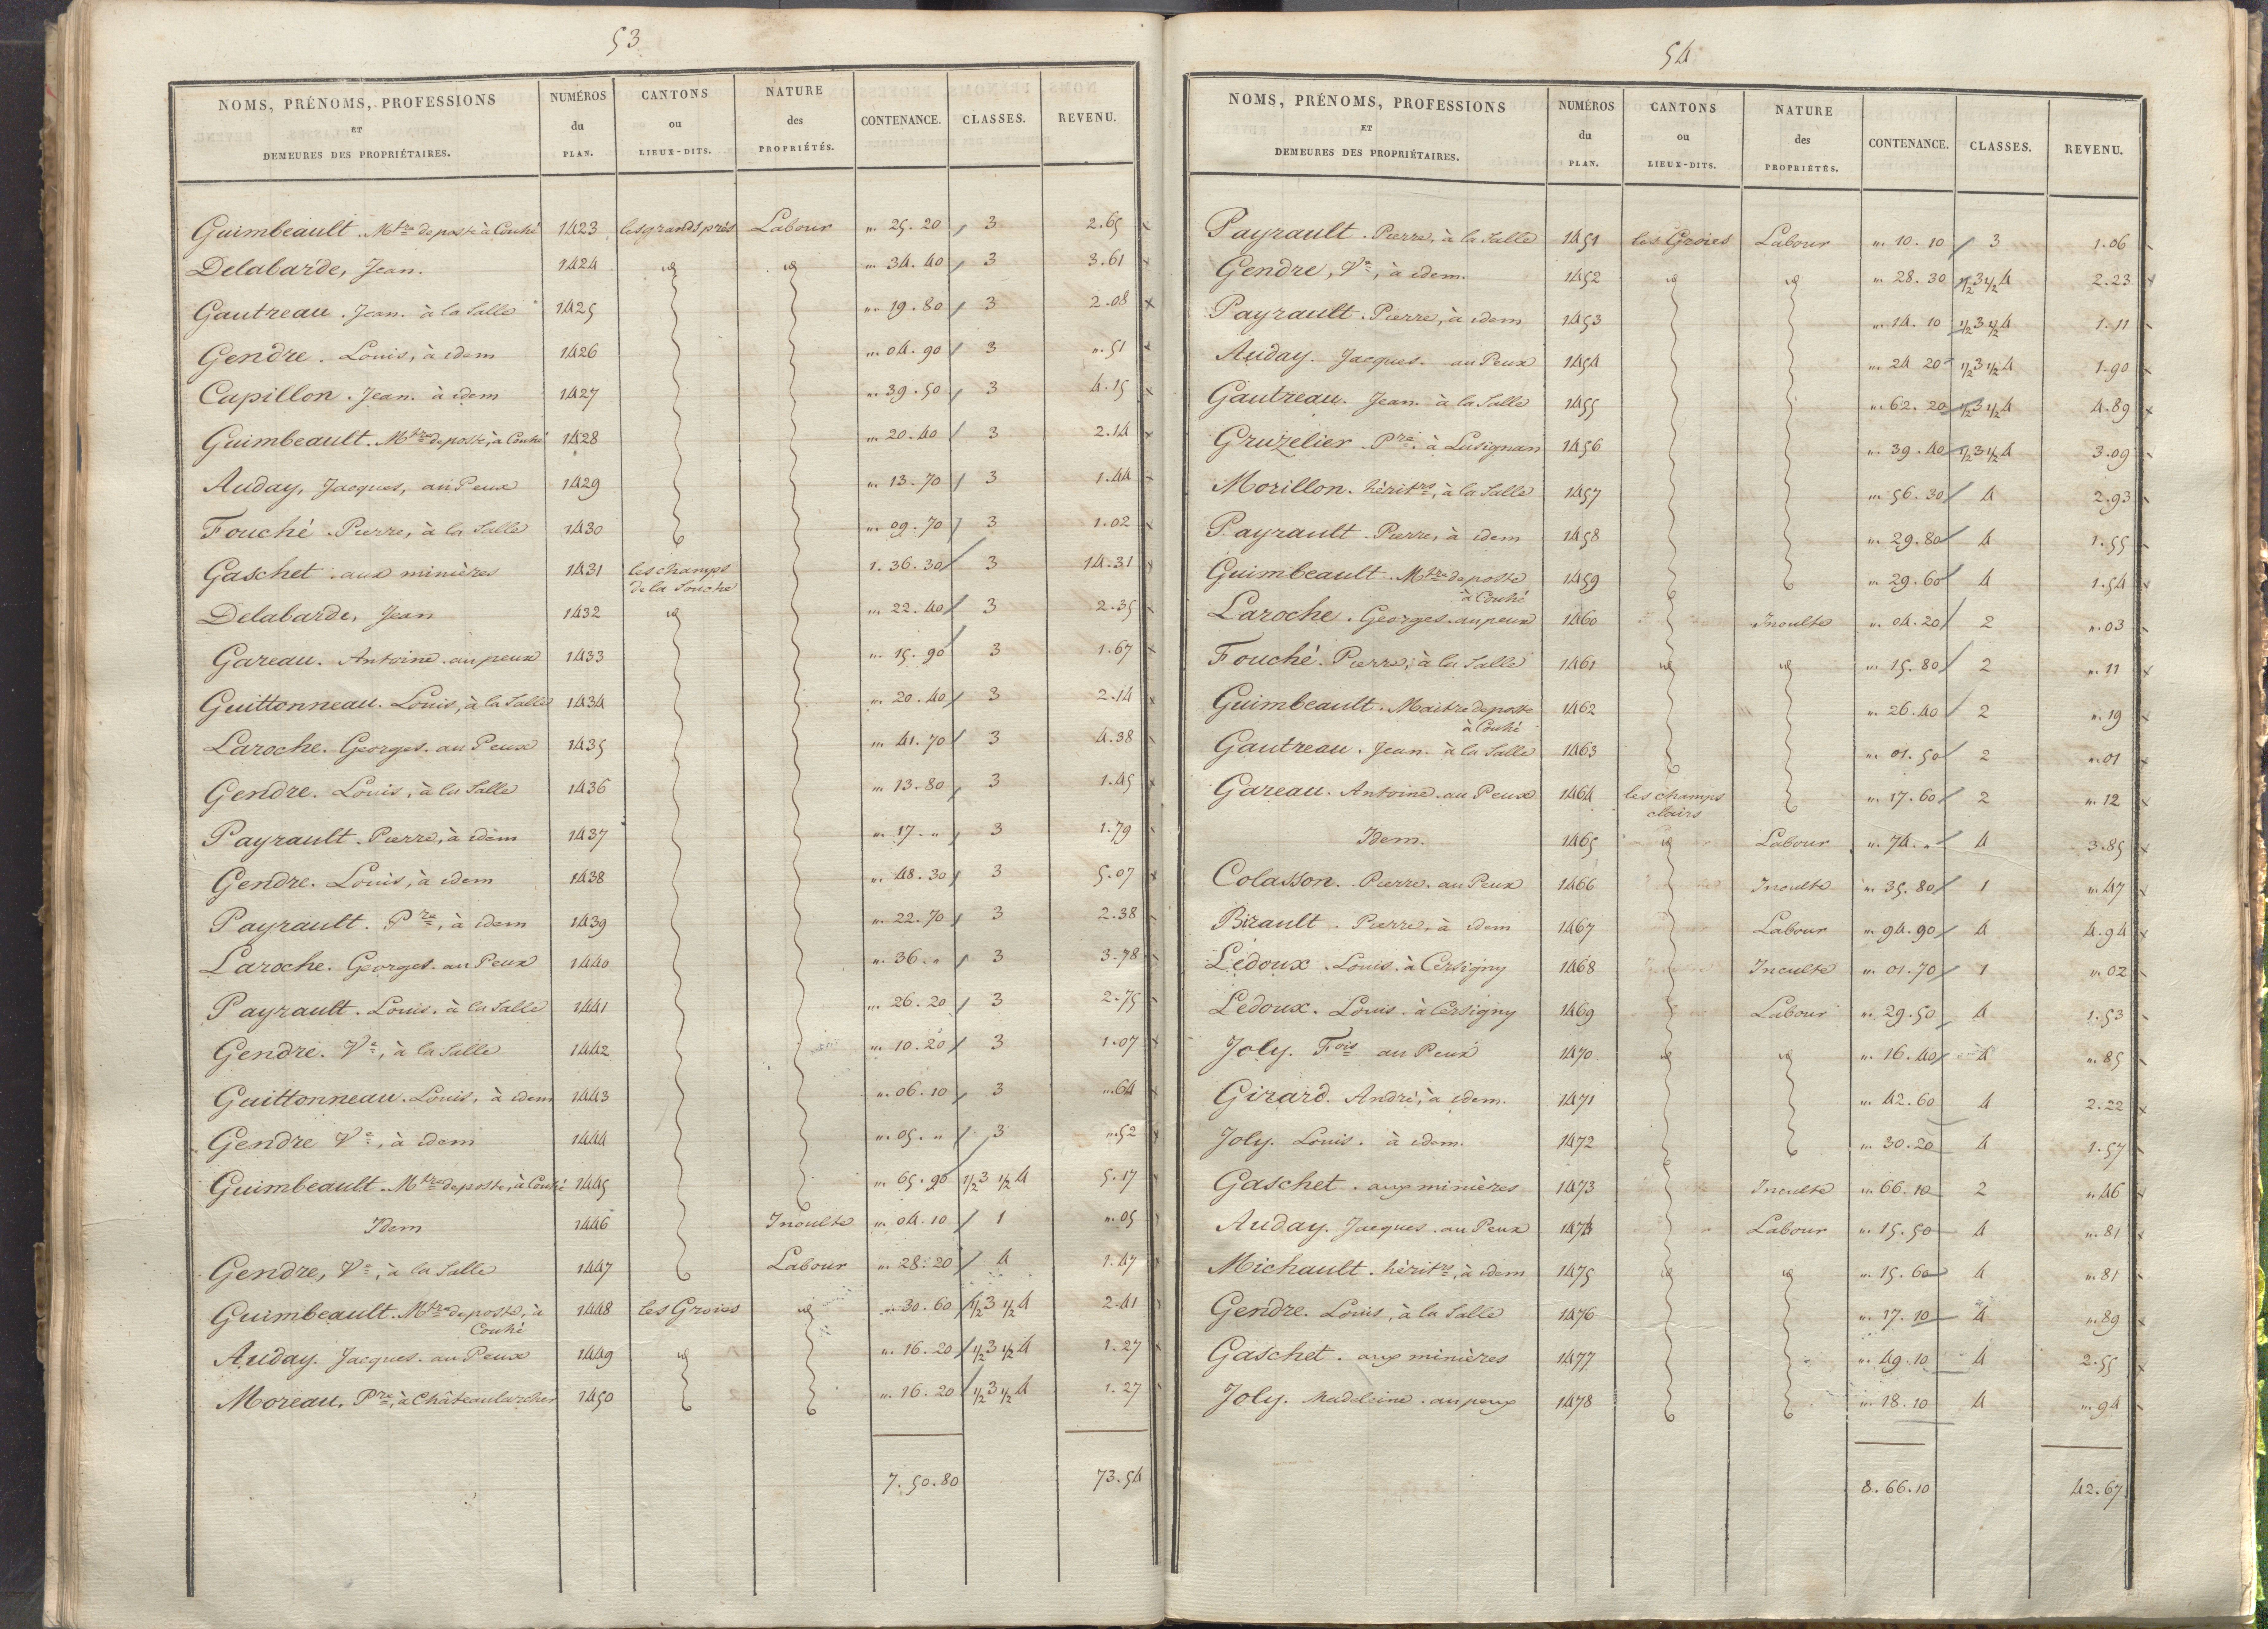 53
NOMS, PRÉNOMS, PROFESSIONS ET DEMEURES DES PROPRIÉTAIRES. NUMÉROS du PLAN. CANTONS ou LIEUX-DITS. NATURE des PROPRIÉTÉS. CONTENANCE. CLASSES. REVENU.
Guimbeault. Mtre de poste à Couhé 1423 les grands prés Labour " 25. 20 3 2.65
Delabarde, Jean. 1424 id id " 34. 40 3 3.61
Gautreau. Jean. à la Salle 1425 " 19. 80 3 2.08
Gendre. Louis, à idem 1426 " 04. 90 3 ". 51
Cupillon. Jean. à idem 1427 " 39. 50 3 4.15
Guimbeault. Mtre de poste, à Couhé 1428 " 20. 40 3 2.14
Auday, Jacques, au Peux 1429 " 13. 70 3 1.44
Fouché. Pierre, à la Salle 1430 " 09. 70 3 1.02
Gaschet. aux minières 1431 les champs 1. 36. 30 3 14.31
de la Souche
Delabarde, Jean 1432 id " 22. 40 3 2.35
Gareau. Antoine. au peux 1433 " 15. 90 3 1.67
Guittonneau. Louis, à la Salle 1434 " 20. 40 3 2.14
Laroche. Georges. au Peux 1435 " 41. 70 3 4.38
Gendre. Louis, à la Salle 1436 " 13. 80 3 1.45
Payrault. Pierre, à idem 1437 " 17. " 3 1.79
Gendre. Louis, à idem 1438 " 48. 30 3 5.07
Payrault. Pre, à idem 1439 " 22. 70 3 2.38
Laroche. Georges. au Peux 1440 " 36. " 3 3.78
Payrault. Louis. à la Salle 1441 " 26. 20 3 2.75
Gendre. Ve, à la Salle 1442 " 10. 20 3 1.07
Guittonneau. Louis, à idem 1443 " 06. 10 3 ". 64
Gendre Ve, à idem 1444 " 05. " 3 ". 52
Guimbeault. Mtre de poste, à Couhé 1445 " 65. 90 1/2 3 1/2 4 5.17
Idem 1446 Inculte " 04. 10 1 ". 05
Gendre, Ve, à la Salle 1447 Labour " 28. 20 4 1.47
Guimbeault. Mtre de poste, à 1448 les Groies id " 30. 60 1/2 3 1/2 4 2.41
Couhé
Auday. Jacques. au Peux 1449 id " 16. 20 1/2 3 1/2 4 1.27
Moreau, Pre, à Châteaularcher 1450 " 16. 20 1/2 3 1/2 4 1.27
7. 50. 80 73.54
54
NOMS, PRÉNOMS, PROFESSIONS ET DEMEURES DES PROPRIÉTAIRES. NUMÉROS du PLAN. CANTONS ou LIEUX-DITS. NATURE des PROPRIÉTÉS. CONTENANCE. CLASSES. REVENU.
Payrault. Pierre, à la Salle 1451 les Groies Labour " 10. 10 3 1.06
Gendre, Ve, à idem. 1452 id id " 28. 30 1/2 3 1/2 4 2.23
Payrault. Pierre, à idem 1453 " 14. 10 1/2 3 1/2 4 1.11
Auday. Jacques. au Peux 1454 " 24 20 1/2 3 1/2 4 1.90
Gautreau. Jean. à la Salle 1455 " 62. 20 1/2 3 1/2 4 4.89
Gruzelier. Pre, à Lusignan 1456 " 39. 40 1/2 3 1/2 4 3.09
Morillon. héritrs, à la Salle 1457 " 56. 30 4 2.93
Payrault. Pierre, à idem 1458 " 29. 80 4 1.55
Guimbeault. Mtre de poste 1459 " 29. 60 4 1.54
à Couhé
Laroche. Georges. au peux 1460 Inculte " 04. 20 2 ". 03
Fouché. Pierre, à la Salle 1461 id id " 15. 80 2 ". 11
Guimbeault. Maitre de poste 1462 " 26. 40 2 ". 19
à Couhé
Gautreau. Jean. à la Salle 1463 " 01. 50 2 ". 01
Gareau. Antoine. au Peux 1464 les champs " 17. 60 2 ". 12
clairs
Idem. 1465 id Labour " 74. " 4 3.85
Colasson. Pierre. au Peux 1466 Inculte " 35. 80 1 ". 47
Birault. Pierre, à idem 1467 Labour " 94. 90 4 4.94
Ledoux. Louis. à Cersigny 1468 Inculte " 01. 70 1 ". 02
Ledoux. Louis. à Cersigny 1469 Labour " 29. 50 4 1.53
Joly. Fois au Peux 1470 id id " 16. 40 4 ". 85
Girard. André, à idem. 1471 " 42. 60 4 2.22
Joly. Louis. à idem. 1472 " 30. 20 4 1.57
Gaschet. aux minières 1473 Inculte " 66. 10 2 ". 46
Auday. Jacques. au Peux 1474 Labour " 15. 50 4 ". 81
Michault. héritrs, à idem 1475 id id " 15. 60 4 ". 81
Gendre. Louis, à la Salle 1476 " 17. 10 4 ". 89
Gaschet. aux minières 1477 " 49. 10 4 2.55
Joly. Madeleine. au peux 1478 " 18. 10 4 ". 94
8. 66. 10 42.67